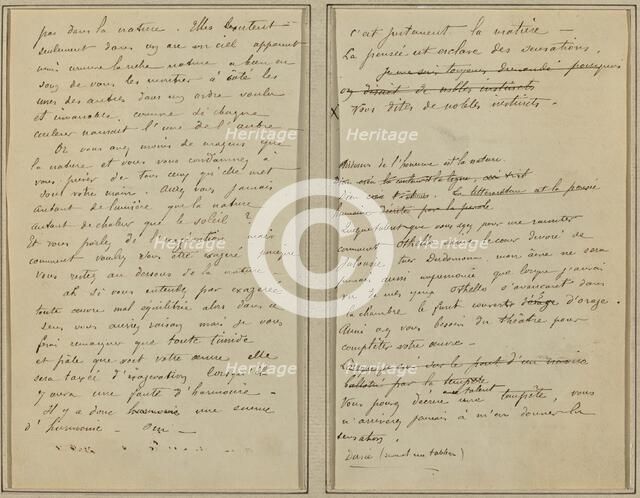 pas dans la nature. Elles existent
seulement dans un arc en ciel apparent
mais comme la riche nature a bien eu
soin de vous les montrer à côté les
unes des autres dans un ordre voulu
et immuable comme si chaque
couleur naissait l'une de l'autre
Or vous avez moins de moyens que
la nature et vous vous condamnez à
vous priver de tous ceux qu'elle met
sous votre main. Aurez vous jamais
autant de lumière que la nature
autant de chaleur que le soleil ?
Et vous parlez d'exagération mais
comment voulez vous être exagéré puisque
vous restez au dessous de la nature
ah si vous entendez par exagérée
toute œuvre mal équilibrée alors dans ce
sens vous aurez raison mais je vous
ferai remarquer que toute timide
et pâle que soit votre œuvre elle
sera taxée d'exagération lorsqu'il
y aura une faute d'harmonie -
Il y a donc harmonie une science
d'harmonie - Oui -
c'est justement la matière -
La pensée est esclave des sensations.
Je me suis toujours demandé pourquoi
on disait de nobles instincts
X Vous dites de nobles instincts -
Au dessus de l'homme est la nature.
La littérature est la pensée
humaine décrite par la parole
Quelque talent que vous ayez pour me raconter
comment Othello vient le cœur dévoré de
jalousie tuer Desdemona mon âme ne sera
jamais aussi impressionnée que lorsque j'aurais
vu de mes yeux Othello s'avançant dans
la chambre le front couvert d'orage d'orage.
Aussi avez vous besoin du théâtre pour
compléter votre œuvre -
sur le pont d'un navire
balloté par la tempête
talent
Vous pouvez décrire une tempête, vous
n'arriverez jamais à m'en donner la
sensation.
Heritage
Heritage
Heritage
Heritage
Heritage
Heritage
Heritage
Heritage